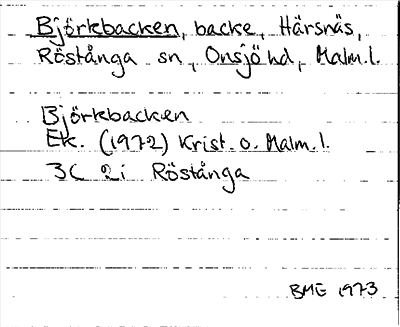 Björkbacken, backe, Härsnäs,
Röstånga sn, Onsjö hd, Malm.l.
Björkbacken
Ek. (1972) Krist. o. Malm.l.
3C 2i Röstånga
BME 1973